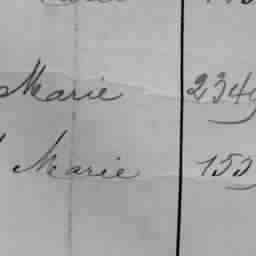 Marie 2349
Marie 153